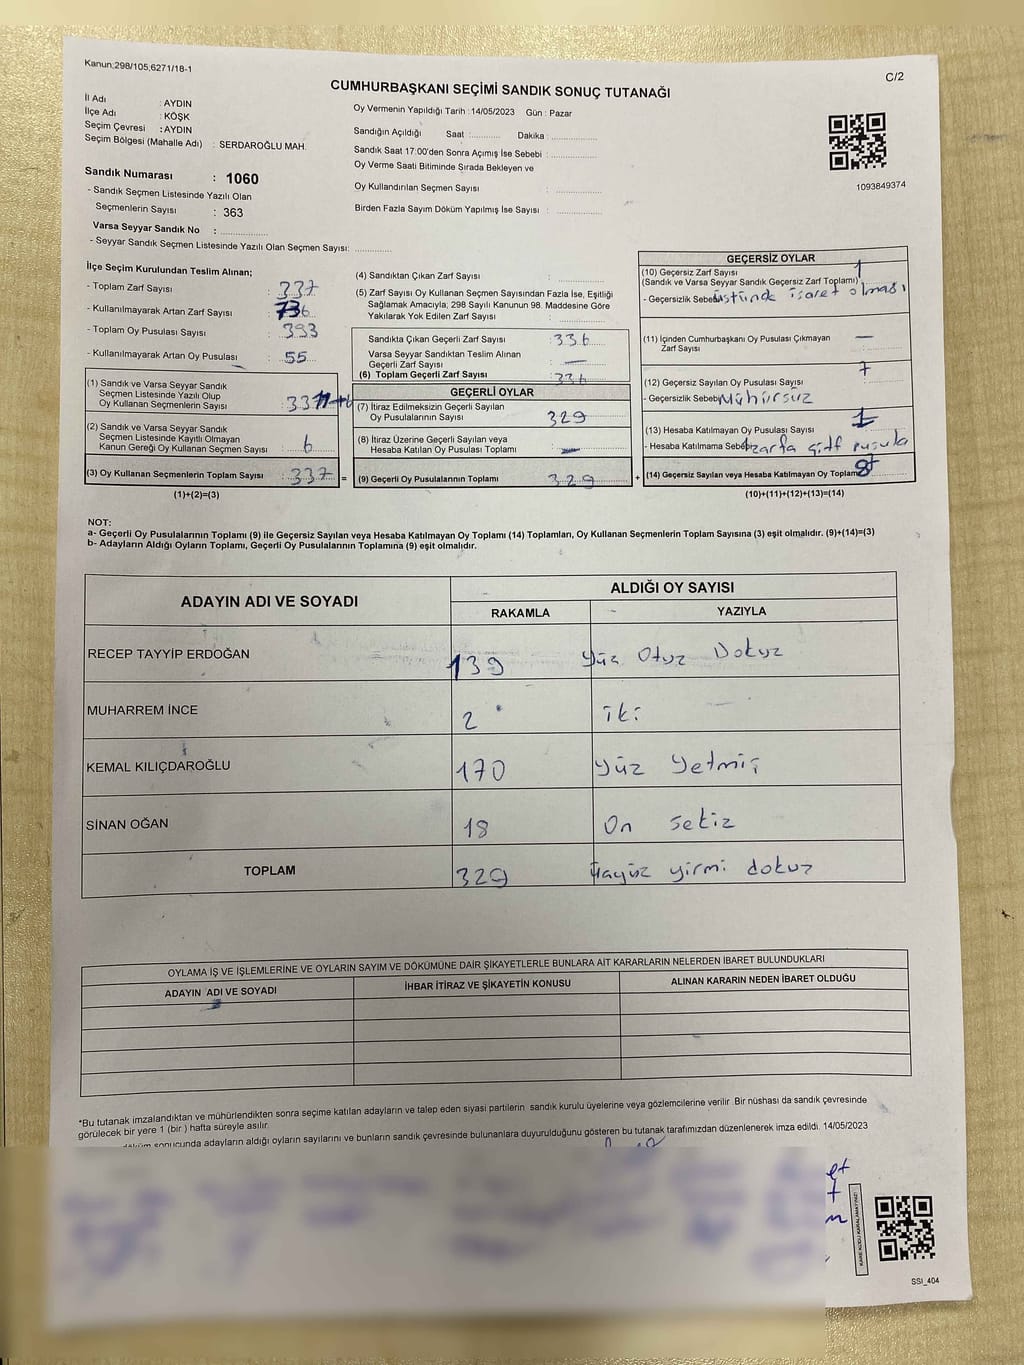 Kanun:298/105,6271/18-1
C/2
CUMHURBAŞKANI SEÇİMİ SANDIK SONUÇ TUTANAĞI
İl Adı : AYDIN
İlçe Adı : KÖŞK
Seçim Çevresi : AYDIN
Seçim Bölgesi (Mahalle Adı) : SERDAROĞLU MAH.
Oy Vermenin Yapıldığı Tarih :14/05/2023 Gün : Pazar
Sandığın Açıldığı Saat :.......... Dakika :..............
Sandık Saat 17:00'den Sonra Açımış İse Sebebi :..............
Oy Verme Saati Bitiminde Sırada Bekleyen ve
Oy Kullandırılan Seçmen Sayısı : ..............
Birden Fazla Sayım Döküm Yapılmış İse Sayısı : ..............
1093849374
Sandık Numarası : 1060
- Sandık Seçmen Listesinde Yazılı Olan
Seçmenlerin Sayısı : 363
Varsa Seyyar Sandık No : ..............
- Seyyar Sandık Seçmen Listesinde Yazılı Olan Seçmen Sayısı: ............
İlçe Seçim Kurulundan Teslim Alınan;
- Toplam Zarf Sayısı : 337
- Kullanılmayarak Artan Zarf Sayısı :
- Toplam Oy Pusulası Sayısı : 393
- Kullanılmayarak Artan Oy Pusulası : 55
(1) Sandık ve Varsa Seyyar Sandık
Seçmen Listesinde Yazılı Olup
Oy Kullanan Seçmenlerin Sayısı :
(2) Sandık ve Varsa Seyyar Sandık
Seçmen Listesinde Kayıtlı Olmayan
Kanun Gereği Oy Kullanan Seçmen Sayısı : 6
(3) Oy Kullanan Seçmenlerin Toplam Sayısı : 337 =
(1)+(2)=(3)
(4) Sandıktan Çıkan Zarf Sayısı : ..............
(5) Zarf Sayısı Oy Kullanan Seçmen Sayısından Fazla İse, Eşitliği
Sağlamak Amacıyla, 298 Sayılı Kanunun 98. Maddesine Göre
Yakılarak Yok Edilen Zarf Sayısı : ..............
Sandıkta Çıkan Geçerli Zarf Sayısı : 336
Varsa Seyyar Sandıktan Teslim Alınan
Geçerli Zarf Sayısı : —
(6) Toplam Geçerli Zarf Sayısı : 336
GEÇERLİ OYLAR
(7) İtiraz Edilmeksizin Geçerli Sayılan
Oy Pusulalarının Sayısı : 329
(8) İtiraz Üzerine Geçerli Sayılan veya
Hesaba Katılan Oy Pusulası Toplamı : —
(9) Geçerli Oy Pusulalarının Toplamı : 329 +
GEÇERSİZ OYLAR
(10) Geçersiz Zarf Sayısı 1
(Sandık ve Varsa Seyyar Sandık Geçersiz Zarf Toplamı)
- Geçersizlik Sebebi üstünde işaret olması
(11) İçinden Cumhurbaşkanı Oy Pusulası Çıkmayan
Zarf Sayısı —
(12) Geçersiz Sayılan Oy Pusulası Sayısı
- Geçersizlik Sebebi Mühürsüz
(13) Hesaba Katılmayan Oy Pusulası Sayısı
- Hesaba Katılmama Sebebi zarfa çift pusula
(14) Geçersiz Sayılan veya Hesaba Katılmayan Oy Toplamı
(10)+(11)+(12)+(13)=(14)
NOT:
a- Geçerli Oy Pusulalarının Toplamı (9) ile Geçersiz Sayılan veya Hesaba Katılmayan Oy Toplamı (14) Toplamları, Oy Kullanan Seçmenlerin Toplam Sayısına (3) eşit olmalıdır. (9)+(14)=(3)
b- Adayların Aldığı Oyların Toplamı, Geçerli Oy Pusulalarının Toplamına (9) eşit olmalıdır.
ADAYIN ADI VE SOYADI
ALDIĞI OY SAYISI
RAKAMLA YAZIYLA
RECEP TAYYİP ERDOĞAN 139 Yüz Otuz Dokuz
MUHARREM İNCE 2 iki
KEMAL KILIÇDAROĞLU 170 Yüz Yetmiş
SİNAN OĞAN 18 On sekiz
TOPLAM 329 üçyüz yirmi dokuz
OYLAMA İŞ VE İŞLEMLERİNE VE OYLARIN SAYIM VE DÖKÜMÜNE DAİR ŞİKAYETLERLE BUNLARA AİT KARARLARIN NELERDEN İBARET BULUNDUKLARI
ADAYIN ADI VE SOYADI
İHBAR İTİRAZ VE ŞİKAYETİN KONUSU
ALINAN KARARIN NEDEN İBARET OLDUĞU
*Bu tutanak imzalandıktan ve mühürlendikten sonra seçime katılan adayların ve talep eden siyasi partilerin sandık kurulu üyelerine veya gözlemcilerine verilir. Bir nüshası da sandık çevresinde
görülecek bir yere 1 (bir ) hafta süreyle asılır.
sonucunda adayların aldığı oyların sayılarını ve bunların sandık çevresinde bulunanlara duyurulduğunu gösteren bu tutanak tarafımızdan düzenlenerek imza edildi. 14/05/2023
KARE KODU KARALAMAYINIZ!
SSI_404